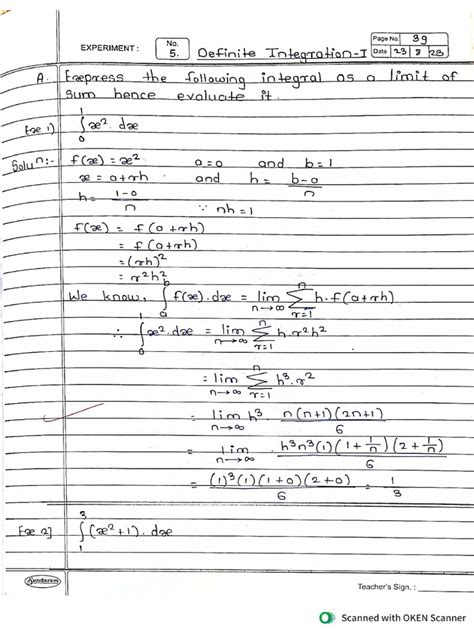 EXPERIMENT : No. 5. Definite Integration-I Page No. 39
Date 23 8 23
A. Express the following integral as a limit of
sum hence evaluate it.
Exe 1) ∫₀¹ x² dx
Soluⁿ:- f(x) = x² a=0 and b=1
x = a+rh and h = (b-a)/n
h = (1-0)/n ∵ nh=1
f(x) = f(a+rh)
= f(a+rh)
= (rh)²
= r²h²
We know, ∫ₐᵇ f(x).dx = lim n→∞ Σ r=1 n h.f(a+rh)
∴ ∫₀¹ x².dx = lim n→∞ Σ r=1 n h.r²h²
= lim n→∞ Σ r=1 n h³.r²
= lim n→∞ h³. n(n+1)(2n+1)/6
= lim n→∞ h³n³(1)(1+1/n)(2+1/n)/6
= (1)³(1)(1+0)(2+0)/6 = 1/3
Exe 2] ∫₁³ (x²+1).dx
Sundaram
Teacher's Sign. :
Scanned with OKEN Scanner